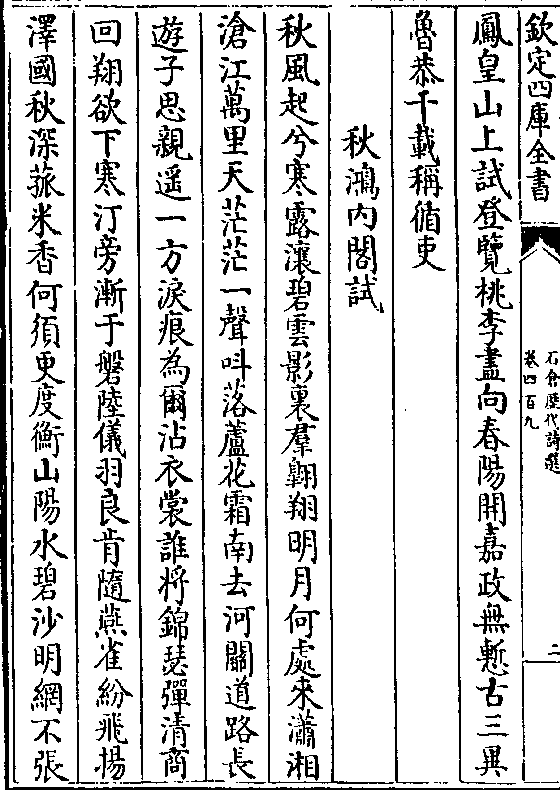 欽定四庫全書
石倉歷代詩選
卷四百九
二
鳳皇山上試登覽桃李盡向春陽開嘉政無慙古三異
魯恭千載稱循吏
秋鴻內閣試
秋風起兮寒露瀼碧雲影裏羣翺翔明月何處來瀟湘
滄江萬里天茫茫一聲呌落蘆花霜南去河關道路長
遊子思親遥一方淚痕為爾沾衣裳誰將錦瑟彈清商
回翔欲下寒汀旁漸于磐陸儀羽良肯隨燕雀紛飛揚
澤國秋深菰米香何須更度衡山陽水碧沙明網不張